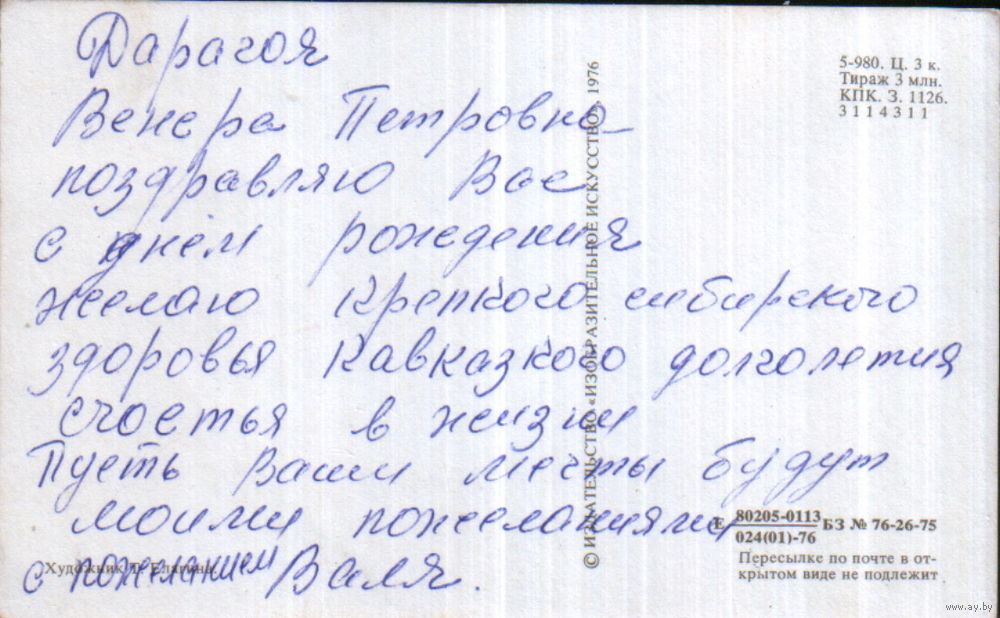 Дарагоя
Венера Петровна
поздравляю Вас
с днём рождения
желаю крепкого сибирского
здоровья Кавказкого долголетия
счастья в жизни
Пусть Ваши мечты будут
моими пожеланиями
с пожеланием Валя.
5-980. Ц. 3 к.
Тираж 3 млн.
КПК. З. 1126.
3 1 1 4 3 1 1
© ИЗДАТЕЛЬСТВО «ИЗОБРАЗИТЕЛЬНОЕ ИСКУССТВО». 1976
Е 80205-0113 БЗ № 76-26-75
024(01)-76
Пересылке по почте в от-
крытом виде не подлежит
Художник
www.ay.by